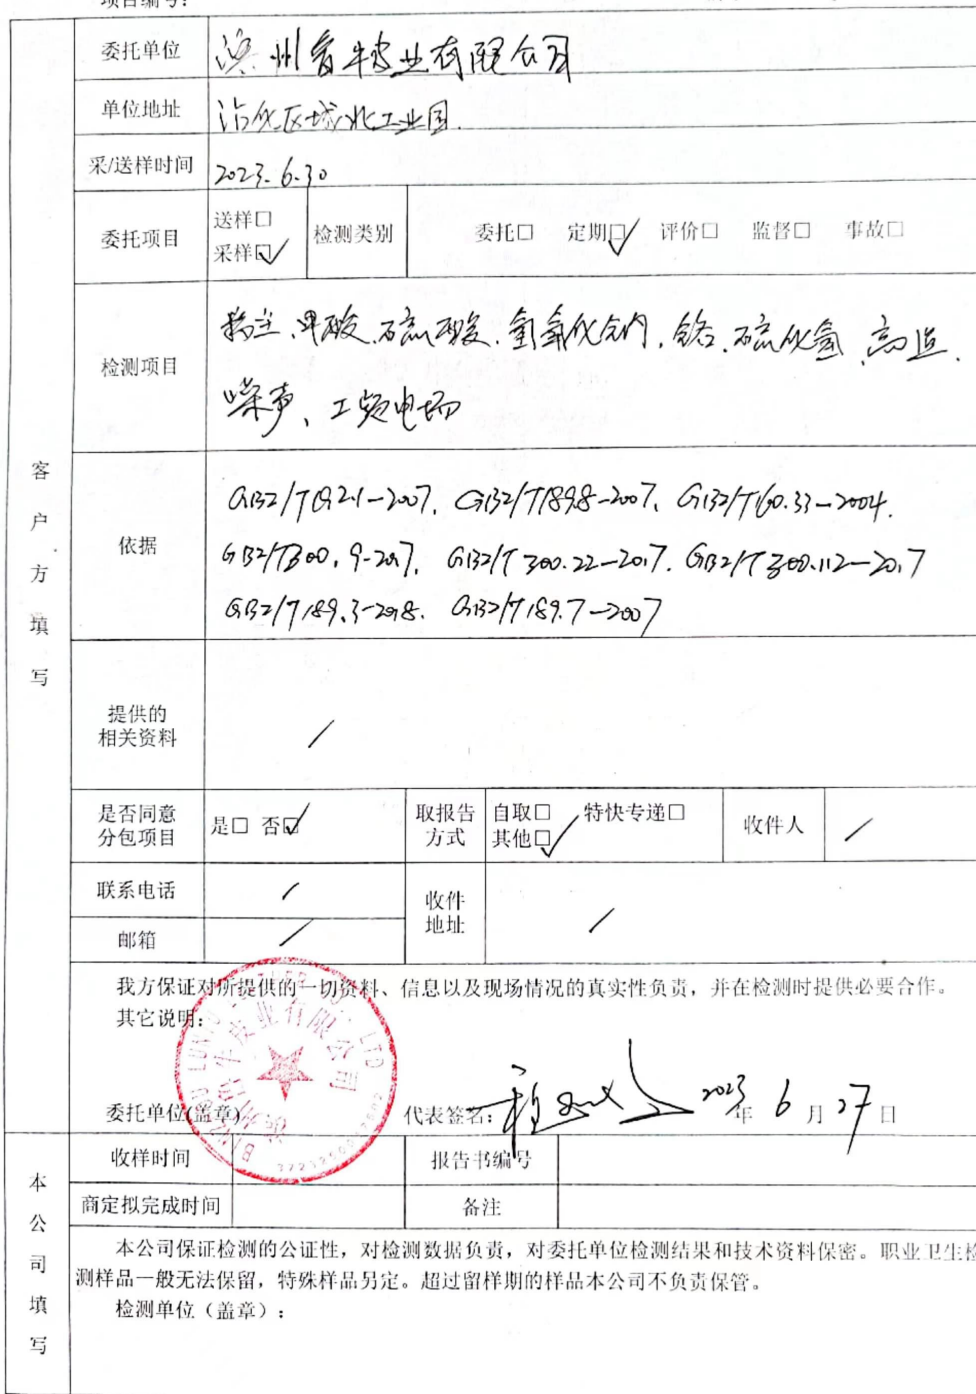 项目编号:
委托单位 滨州鲁牛皮业有限公司
单位地址 沾化区城北工业园.
采/送样时间 2023.6.30
委托项目 送样□ 采样☑ 检测类别 委托□ 定期☑ 评价□ 监督□ 事故□
检测项目 粉尘、甲酸、硫酸、氢氧化钠、铬、硫化氢、高温、
噪声、工频电场
依据
GBZ/T192.1-2007、GBZ/T189.8-2007、GBZ/T160.33-2004、
GBZ/T300.9-2017、GBZ/T300.22-2017、GBZ/T300.112-2017
GBZ/T189.3-2018、GBZ/T189.7-2007
客户方填写
提供的
相关资料 /
是否同意
分包项目 是□ 否☑ 取报告
方式 自取□ 特快专递□
其他☑ 收件人 /
联系电话 / 收件
地址 /
邮箱 /
我方保证对所提供的一切资料、信息以及现场情况的真实性负责，并在检测时提供必要合作。
其它说明:
滨州鲁牛皮业有限公司
委托单位(盖章) 代表签名: 2023年 6月27日
收样时间 报告书编号
商定拟完成时间 备注
本公司填写
本公司保证检测的公证性，对检测数据负责，对委托单位检测结果和技术资料保密。职业卫生检
测样品一般无法保留，特殊样品另定。超过留样期的样品本公司不负责保管。
检测单位（盖章）: